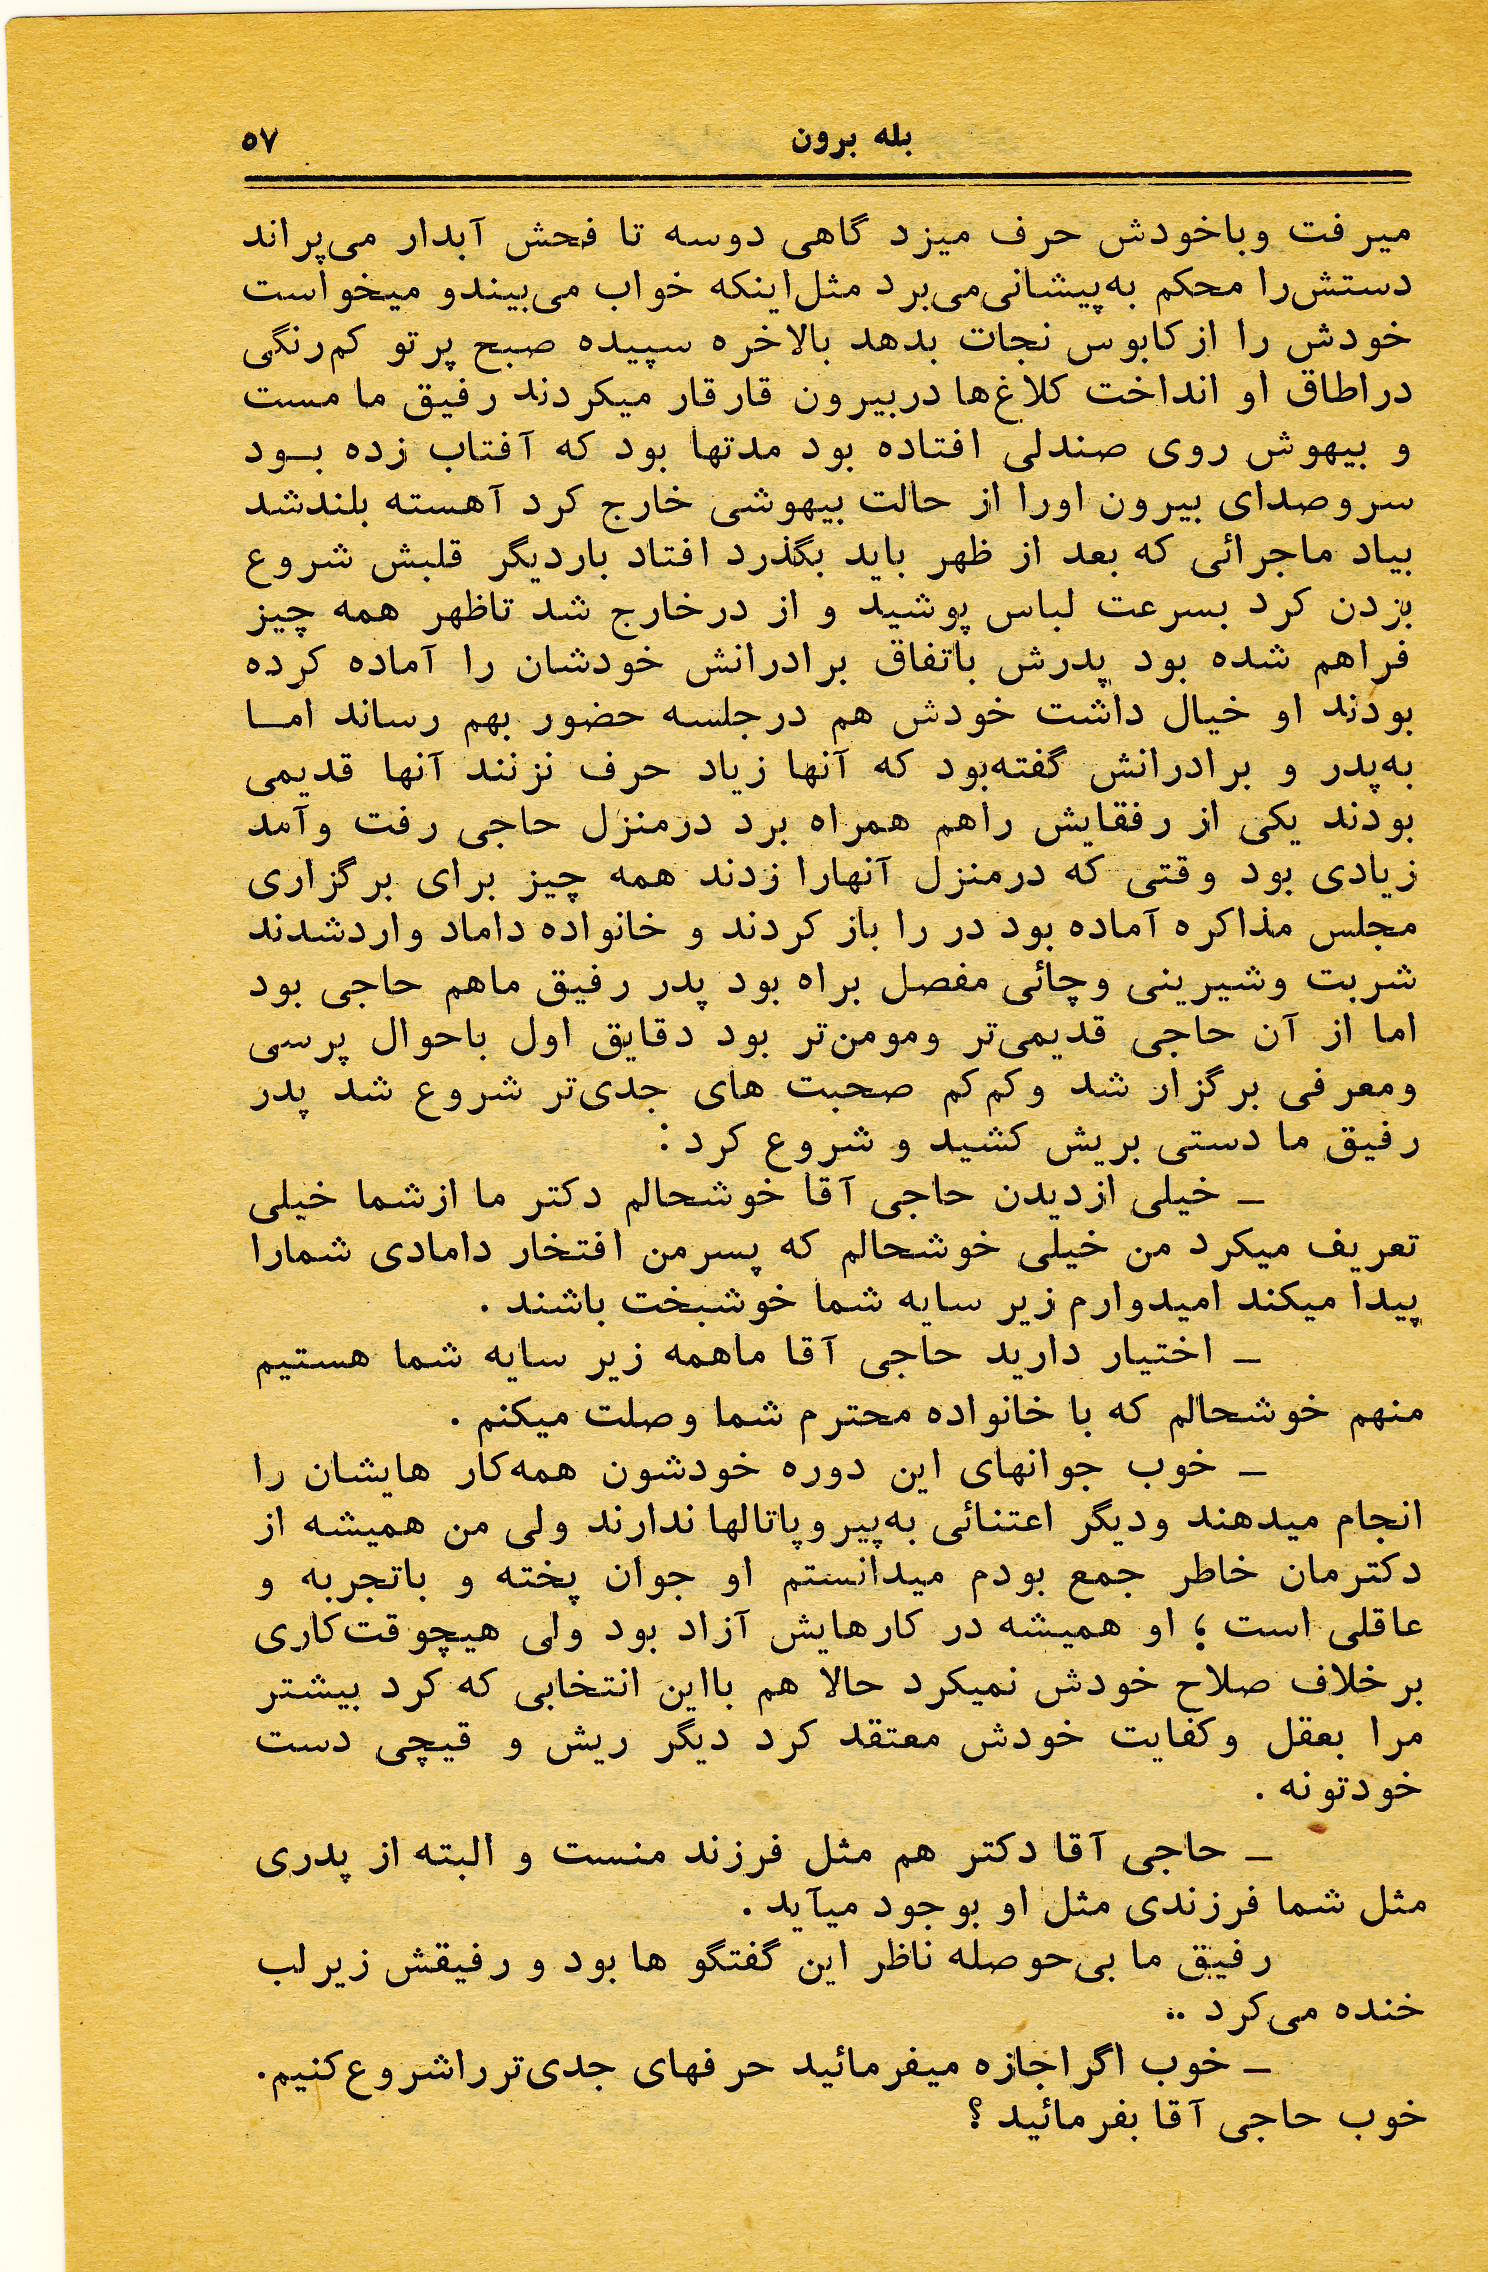 بله برون
۵۷
میرفت وباخودش حرف میزد گاهی دوسه تا فحش آبدار می‌پراند
دستش‌را محکم به‌پیشانی‌می‌برد مثل‌اینکه خواب می‌بیندو میخواست
خودش را ازکابوس نجات بدهد بالاخره سپیده صبح پرتو کم‌رنگی
دراطاق او انداخت کلاغ‌ها دربیرون قارقار میکردند رفیق ما مست
و بیهوش روی صندلی افتاده بود مدتها بود که آفتاب زده بـود
سروصدای بیرون اورا از حالت بیهوشی خارج کرد آهسته بلندشد
بیاد ماجرائی که بعد از ظهر باید بگذرد افتاد باردیگر قلبش شروع
بزدن کرد بسرعت لباس پوشید و از درخارج شد تاظهر همه چیز
فراهم شده بود پدرش باتفاق برادرانش خودشان را آماده کرده
بودند او خیال داشت خودش هم درجلسه حضور بهم رساند امـا
به‌پدر و برادرانش گفته‌بود که آنها زیاد حرف نزنند آنها قدیمی
بودند یکی از رفقایش راهم همراه برد درمنزل حاجی رفت وآمد
زیادی بود وقتی که درمنزل آنهارا زدند همه چیز برای برگزاری
مجلس مذاکره آماده بود در را باز کردند و خانواده داماد واردشدند
شربت وشیرینی وچائی مفصل براه بود پدر رفیق ماهم حاجی بود
اما از آن حاجی قدیمی‌تر ومومن‌تر بود دقایق اول باحوال پرسی
ومعرفی برگزار شد وکم‌کم صحبت های جدی‌تر شروع شد پدر
رفیق ما دستی بریش کشید و شروع کرد :
ـ خیلی ازدیدن حاجی آقا خوشحالم دکتر ما ازشما خیلی
تعریف میکرد من خیلی خوشحالم که پسرمن افتخار دامادی شمارا
پیدا میکند امیدوارم زیر سایه شما خوشبخت باشند .
ـ اختیار دارید حاجی آقا ماهمه زیر سایه شما هستیم
منهم خوشحالم که با خانواده محترم شما وصلت میکنم .
ـ خوب جوانهای این دوره خودشون همه‌کار هایشان را
انجام میدهند ودیگر اعتنائی به‌پیروپاتالها ندارند ولی من همیشه از
دکترمان خاطر جمع بودم میدانستم او جوان پخته و باتجربه و
عاقلی است ؛ او همیشه در کارهایش آزاد بود ولی هیچوقت‌کاری
برخلاف صلاح خودش نمیکرد حالا هم بااین انتخابی که کرد بیشتر
مرا بعقل وکفایت خودش معتقد کرد دیگر ریش و قیچی دست
خودتونه .
ـ حاجی آقا دکتر هم مثل فرزند منست و البته از پدری
مثل شما فرزندی مثل او بوجود میآید .
رفیق ما بی‌حوصله ناظر این گفتگو ها بود و رفیقش زیرلب
خنده می‌کرد ..
ـ خوب اگراجازه میفرمائید حرفهای جدی‌ترراشروع‌کنیم.
خوب حاجی آقا بفرمائید ؟